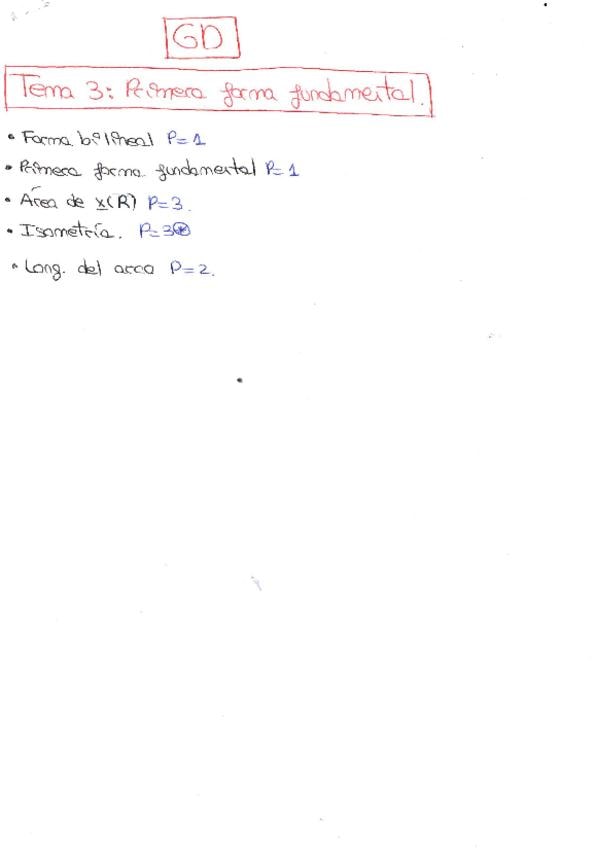 GD
Tema 3: Primera forma fundamental.
• Forma bilineal P=1
• Primera forma fundamental P=1
• Área de x(R) P=3.
• Isometría. P=3⊛
• Long. del arco P=2.